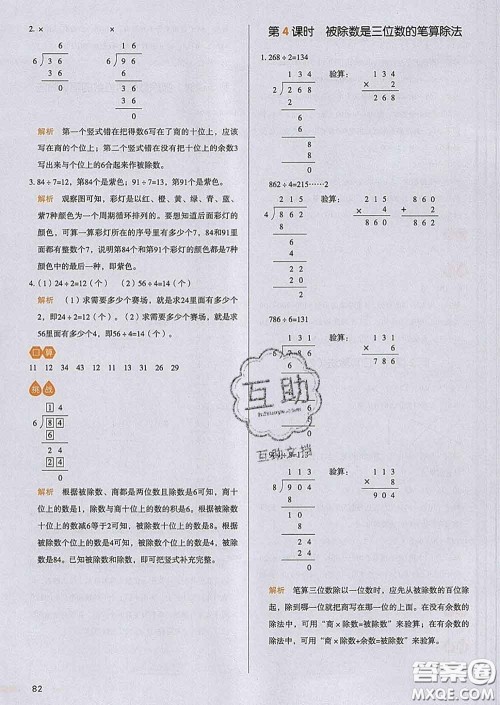 2. × ×
6
6
6 ) 3 6
6 ) 3 6
3 6
3 6
0
0
解析 第一个竖式错在把得数6写在了商的十位上，应该
写在商的个位上；第二个竖式错在没有把十位上的余数3
写出来与个位上的6合起来作被除数。
3. 84÷7=12，第84个是紫色；91÷7=13，第91个是紫色。
解析 观察图可知，彩灯是以红、橙、黄、绿、青、蓝、
紫7种颜色为一个周期循环排列的。要想知道后面彩灯的
颜色，可算一算彩灯所在的序号里有多少个7，84和91里
面都有整数个7，说明第84个和第91个彩灯的颜色都是7种
颜色中的最后一种，即紫色。
4.（1）24÷2=12（个）（2）56÷4=14（个）
解析 （1）求需要多少个赛场，就是求24里面有多少个
2，即24÷2=12（个）。（2）求需要多少个赛场，就是求
56里面有多少个4，即56÷4=14（个）。
口算
11 12 34 32 43 11 12 13 31 26 29
挑战
1 4
6 ) 8 4
6
2 4
2 4
0
解析 根据被除数、商都是两位数且除数是6可知，商十
位上的数是1，除数与商十位上的数的积是6。根据被除数
十位上的数减6等于2可知，被除数十位上的数是8。根据
被除数个位上的数是4可知，商个位上的数是4，被除数
是84。已知被除数和除数，即可把竖式补充完整。
82
第4课时 被除数是三位数的笔算除法
1. 268÷2=134
1 3 4 验算： 1 3 4
2 ) 2 6 8 × 2
2 2 6 8
6
6
8
8
0
862÷4=215……2
2 1 5 验算： 2 1 5 8 6 0
4 ) 8 6 2 × 4 + 2
8 8 6 0 8 6 2
6
4
2 2
2 0
2
786÷6=131
1 3 1 验算： 1 3 1
6 ) 7 8 6 × 6
6 7 8 6
1 8
1 8
6
6
0
1 1 3 验算： 1 1 3
8 ) 9 0 4 × 8
8 9 0 4
1 0
8
2 4
2 4
0
解析 笔算三位数除以一位数时，应先从被除数的百位除
起，除到哪一位就把商写在那一位的上面。在没有余数的
除法中，可用“商×除数=被除数”来验算；在有余数的
除法中，可用“商×除数+余数=被除数”来验算。
互助
答案圈
MXQE.COM